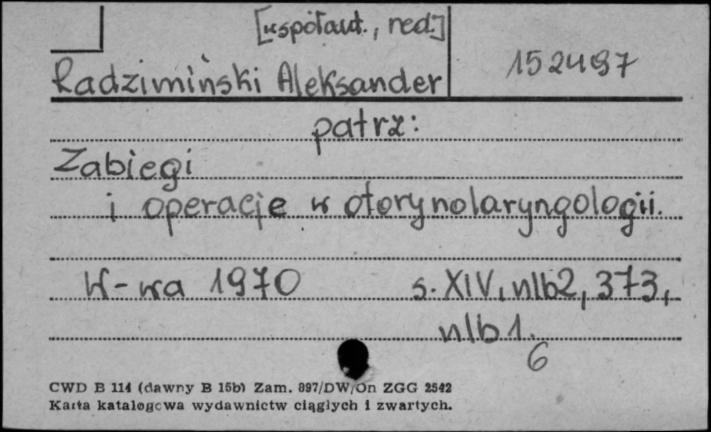 [współaut., red.]
Radzimiński Aleksander
152497
patrz:
Zabiegi
i operacje w otorynolaryngologii.
W-wa 1970 s. XIV, nlb2, 373,
nlb 1.
6
CWD B 114 (dawny B 15b) Zam. 897/DW/On ZGG 2542
Karta katalogowa wydawnictw ciągłych i zwartych.